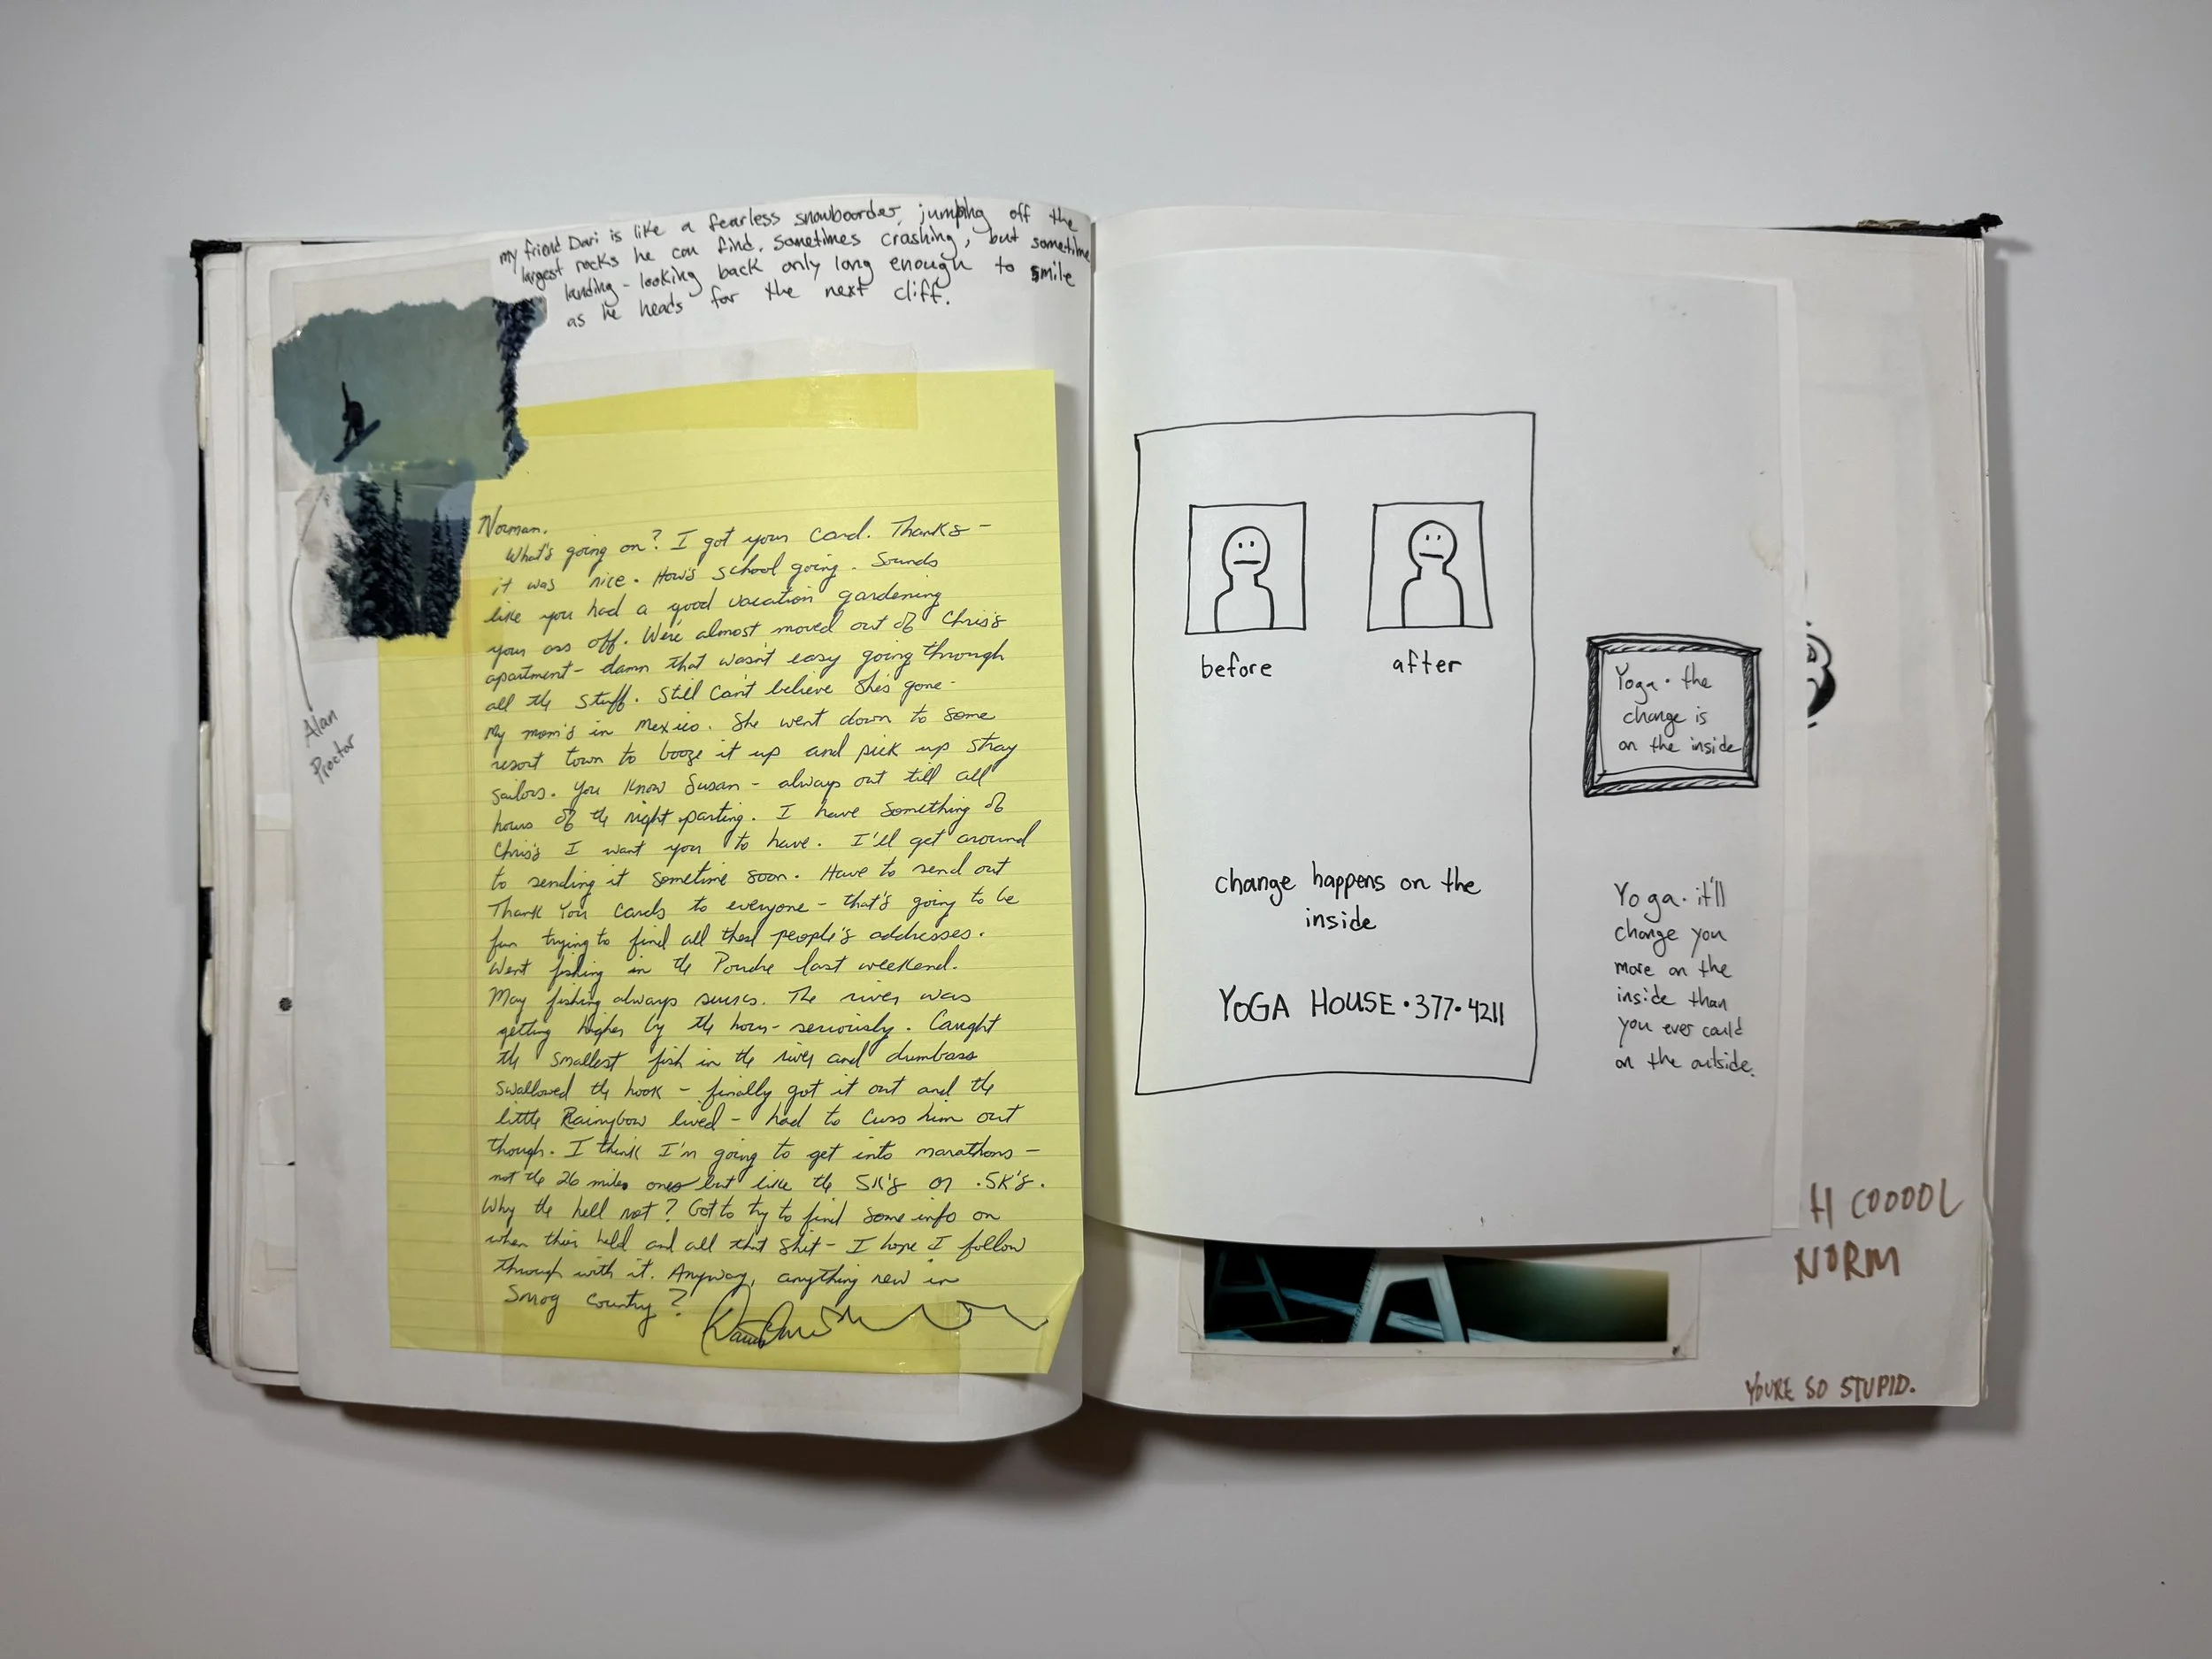 my friend Dari is like a fearless snowboarder, jumping off the
largest rocks he can find. sometimes crashing, but sometime
landing - looking back only long enough to smile
as he heads for the next cliff.
Alan
Proctor
Norman.
What's going on? I got your card. Thanks -
it was nice. How's school going. Sounds
like you had a good vacation gardening
your ass off. We're almost moved out of Chris's
apartment - damn that wasn't easy going through
all the stuff. Still can't believe she's gone -
My mom's in Mexico. She went down to some
resort town to booze it up and pick up stray
sailors. You know Susan - always out till all
hours of the night parting. I have something of
Chris's I want you to have. I'll get around
to sending it sometime soon. Have to send out
Thank You cards to everyone - that's going to be
fun trying to find all these people's addresses.
Went fishing in the Poudre last weekend.
May fishing always sucks. The river was
getting higher by the hour - seriously. Caught
the smallest fish in the river and dumbass
swallowed the hook - finally got it out and the
little Rainybow lived - had to cuss him out
though. I think I'm going to get into marathons -
not the 26 miles ones but like the 5K's or .5K's.
Why the hell not? Got to try to find some info on
when their held and all that shit - I hope I follow
through with it. Anyway, anything new in
Smog Country?
before
after
change happens on the
inside
YOGA HOUSE • 377 • 4211
Yoga • the
change is
on the inside
Yoga • it'll
change you
more on the
inside than
you ever could
on the outside.
H COOOOL
NORM
YOURE SO STUPID.